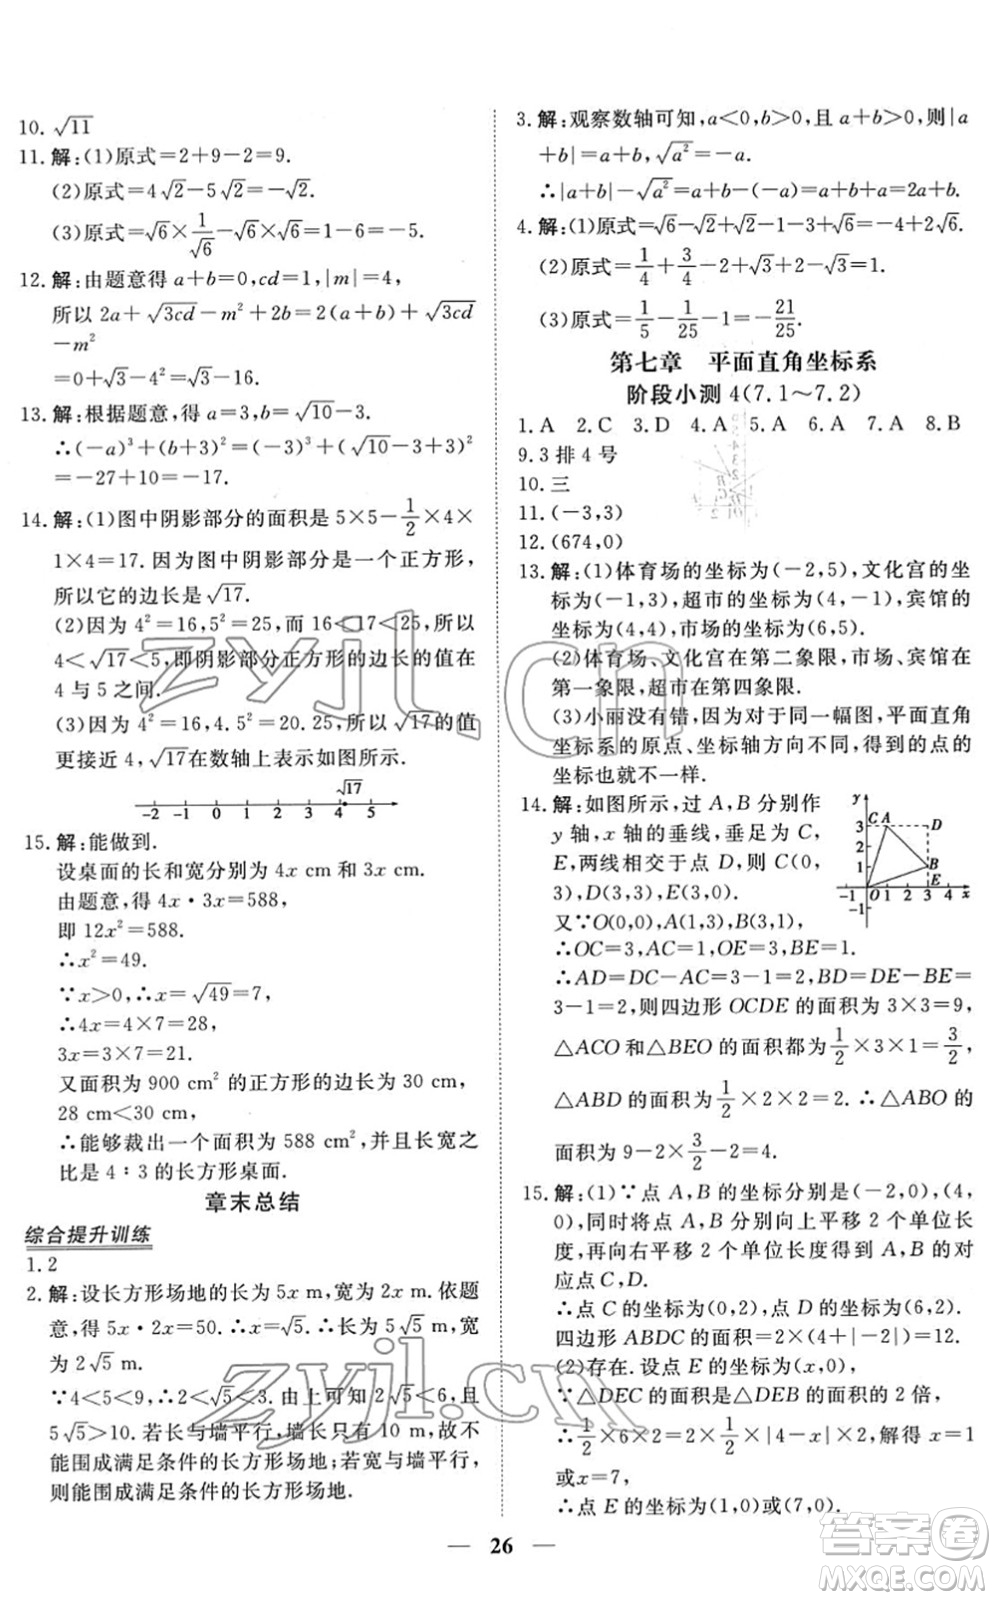 10. √11
11. 解:(1)原式=2+9-2=9.
(2)原式=4√2-5√2=-√2.
(3)原式=√6×1/√6-√6×√6=1-6=-5.
12. 解:由题意得 a+b=0,cd=1,|m|=4,
所以 2a+√3cd-m²+2b=2(a+b)+√3cd
-m²
=0+√3-4²=√3-16.
13. 解:根据题意,得 a=3,b=√10-3.
∴(-a)³+(b+3)²=(-3)³+(√10-3+3)²
=-27+10=-17.
14. 解:(1)图中阴影部分的面积是 5×5-1/2×4×
1×4=17. 因为图中阴影部分是一个正方形,
所以它的边长是 √17.
(2)因为 4²=16,5²=25,而 16<17<25,所以
4<√17<5,即阴影部分正方形的边长的值在
4 与 5 之间.
(3)因为 4²=16,4.5²=20.25,所以√17的值
更接近 4,√17在数轴上表示如图所示.
√17
-2 -1 0 1 2 3 4 5
15. 解:能做到.
设桌面的长和宽分别为 4x cm 和 3x cm.
由题意,得 4x·3x=588,
即 12x²=588.
∴x²=49.
∵x>0,∴x=√49=7,
∴4x=4×7=28,
3x=3×7=21.
又面积为 900 cm² 的正方形的边长为 30 cm,
28 cm<30 cm,
∴能够裁出一个面积为 588 cm²,并且长宽之
比是 4∶3 的长方形桌面.
章末总结
综合提升训练
1. 2
2. 解:设长方形场地的长为 5x m,宽为 2x m. 依题
意,得 5x·2x=50. ∴x=√5. ∴长为 5√5 m,宽
为 2√5 m.
∵4<5<9,∴2<√5<3. 由上可知 2√5<6,且
5√5>10. 若长与墙平行,墙长只有 10 m,故不
能围成满足条件的长方形场地;若宽与墙平行,
则能围成满足条件的长方形场地.
3. 解:观察数轴可知,a<0,b>0,且 a+b>0,则|a
+b|=a+b,√a²=-a.
∴|a+b|-√a²=a+b-(-a)=a+b+a=2a+b.
4. 解:(1)原式=√6-√2+√2-1-3+√6=-4+2√6.
(2)原式=1/4+3/4-2-√3+2-√3=1.
(3)原式=1/5-1/25-1=-21/25.
第七章 平面直角坐标系
阶段小测 4(7.1~7.2)
1. A 2. C 3. D 4. A 5. A 6. A 7. A 8. B
9. 3 排 4 号
10. 三
11. (-3,3)
12. (674,0)
13. 解:(1)体育场的坐标为(-2,5),文化宫的坐
标为(-1,3),超市的坐标为(4,-1),宾馆的
坐标为(4,4),市场的坐标为(6,5).
(2)体育场、文化宫在第二象限,市场、宾馆在
第一象限,超市在第四象限.
(3)小丽没有错,因为对于同一幅图,平面直角
坐标系的原点、坐标轴方向不同,得到的点的
坐标也就不一样.
14. 解:如图所示,过 A,B 分别作
y 轴,x 轴的垂线,垂足为 C,
E,两线相交于点 D,则 C(0,
3),D(3,3),E(3,0).
又∵O(0,0),A(1,3),B(3,1),
∴OC=3,AC=1,OE=3,BE=1.
∴AD=DC-AC=3-1=2,BD=DE-BE=
3-1=2,则四边形 OCDE 的面积为 3×3=9,
△ACO和△BEO 的面积都为1/2×3×1=3/2,
△ABD 的面积为1/2×2×2=2. ∴△ABO 的
面积为 9-2×3/2-2=4.
y
3 C A D
2
1 B
E
-1 O 1 2 3 4 x
-1
15. 解:(1)∵点 A,B 的坐标分别是(-2,0),(4,
0),同时将点 A,B 分别向上平移 2 个单位长
度,再向右平移 2 个单位长度,得到 A,B 的对
应点 C,D.
∴点 C 的坐标为(0,2),点 D 的坐标为(6,2).
四边形 ABDC 的面积=2×(4+|-2|)=12.
(2)存在. 设点 E 的坐标为(x,0).
∵△DEC 的面积是△DEB 的面积的 2 倍,
∴1/2×6×2=2×1/2×|4-x|×2,解得 x=1
或x=7,
∴点 E 的坐标为(1,0)或(7,0).
— 26 —
zyjl.cn
zyjl.cn
答案圈
MXQE.COM